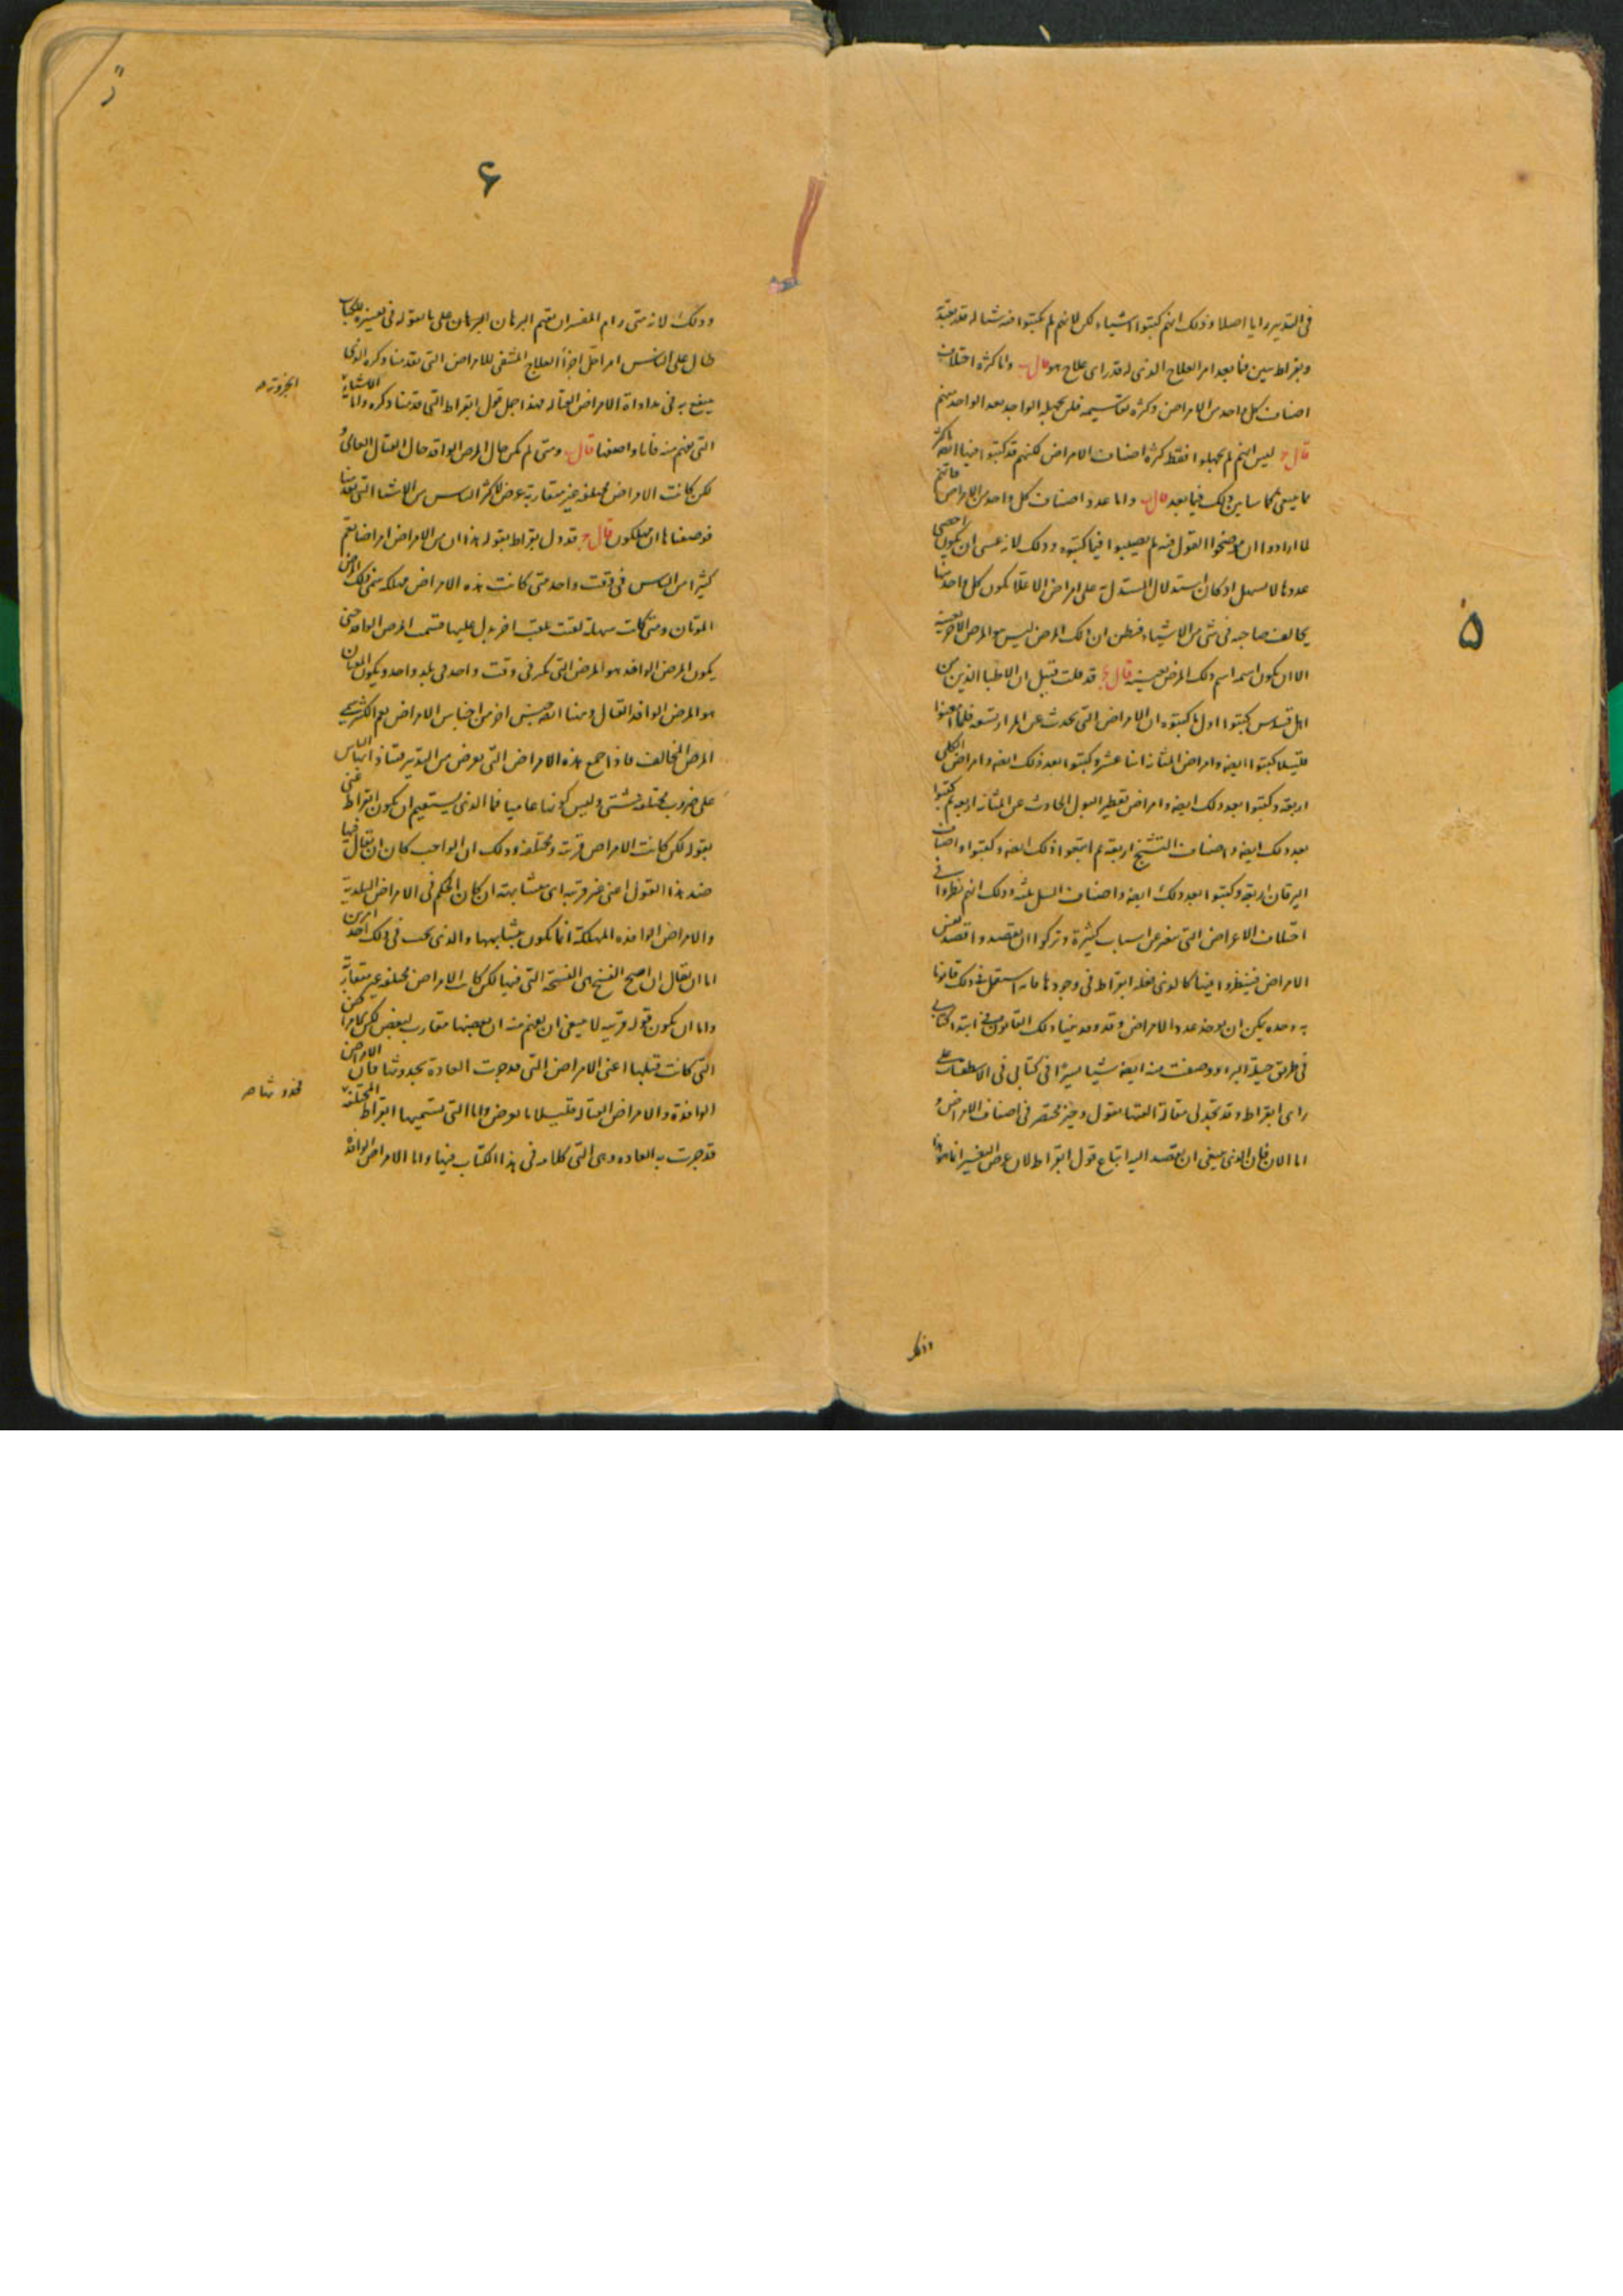 ۵
في التدبير رايا اصلا وذلك انهم كتبوا اشياء لكن لانهم لم يكتبوا فيه شيا له قدر يعتد به
وبقراط يبين فيما بعد امر العلاج الذي له قدر اي علاج هو قال ب واما كثرة اختلاف
اصناف كل واحد من الامراض وكثرة تقاسيمه فلن يجهله الواحد بعد الواحد منهم
قال ج ليس انهم لم يجهلوا فقط كثرة اصناف الامراض لكنهم قد كتبوا فيها اكثر
مما ينبغي كما سابين ذلك فيما بعد قال ب واما عدد اصناف كل واحد من الامراض فانهم
لما ارادوا ان يوضحوا القول فيه لم يصيبوا فيما كتبوه وذلك لانه عسى ان يكون احصى
عددها لا يسهل ان كان استدلال المستدل به على امراض الاعلا يكون كل واحد منها
يخالف صاحبه في شي من الاشياء فيظن ان ذلك المرض ليس هو المرض الاخر بعينه
الا ان يكون اسمه اسم ذلك المرض بعينه قال ج قد قلت قبيل ان الاطبا الذين من
اهل قنيدس كتبوا اول ما كتبوه ان الامراض التي تحدث عن المرار تسعة فلما امعنوا
قليلا كتبوا ايضه وامراض المثانة اثنا عشر وكتبوا بعد ذلك ايضه وامراض الكلى
اربعة وكتبوا بعد ذلك ايضه وامراض تقطير البول الحادث عن المثانة اربعة ثم كتبوا
بعد ذلك ايضه واصناف التشنج اربعة ثم اتبعوا ذلك ايضه وكتبوا واصناف
اليرقان اربعة وكتبوا بعد ذلك ايضه واصناف السل ثلثة وذلك انهم نظروا في
اختلاف الاعراض التي تتغير عن اسباب كثيرة وتركوا ان يقصدوا قصد نفس
الامراض فينظروا فيها كالذي فعله ابقراط في وجودها فانه استعمل في ذلك قانونا
به وحده يمكن ان يوجد عدد الامراض وقد وصفنا ذلك القانون في ابتدا كتابي
في طريق حيلة البرء ووصفت منه ايضه شيا يسيرا في كتابي في الاسطقسات على
راي ابقراط وقد تجد لي مقالة الفتها بقول وجيز مختصر في اصناف الامراض و
اما الان فان الذي ينبغي ان يقصد اليه اتباع قول ابقراط لان غرض التفسير انما هو هذا
وذلك
۶
وذلك لانه متى رام المفسر ان يقيم البرهان على ما يقوله في تفسيره للكتاب
طال على الناس امر اجل اجزاء العلاج المشفي للامراض التي تقدمنا ذكره الذي
ينتفع به في مداواة الامراض القتالة فهذا اجل قول ابقراط التي قدمنا ذكره واما الاشياء
التي تفهم منه فانا واصفها قال ب ومتى لم يكن حال المرض الوافد حال القتال العامي
لكن كانت الامراض مختلفة غير متقاربة عرض لاكثر الناس من الاشيا التي تقدمنا
فوصفناها ان يهلكون قال ج قد دل بقراط بقوله هذا ان من الامراض امراضا تعم
كثيرا من الناس في وقت واحد متى كانت هذه الامراض مهلكة سمي ذلك المرض
الموتان ومتى كانت سهلة لقبت بلقب اخر يدل عليها فسمت المرض الوافد حتى
يكون المرض الوافد هو المرض التي يكثر في وقت واحد في بلد واحد ويكون الموتان
هو المرض الوافد القتال ومنها ايضه جنس اخر من اجناس الامراض يعم اكثر من
المرض المخالف فاذا جمع هذه الامراض التي تعرض من التدبير فتنال الناس
على ضروب مختلفة شتى وليس كونها عاميا فما الذي يستقيم ان يكون ابقراط عنى
بقوله لكن كانت الامراض قريبة ومختلفة وذلك ان الواجب كان ان يقال فيها
ضد هذا القول اعني غير قريبة اي متشابهة ان كان الحكم في الامراض البلدية
والامراض الوافده المهلكة انما يكون بتشابهها والذي يجب في ذلك احد امرين
اما ان يقال ان اصح النسخ هي النسخة التي فيها لكن كانت الامراض مختلفة غير متقاربة
واما ان يكون قوله قريبة لا ينبغي ان يفهم منه ان بعضها مقارب لبعض لكن كامراض
التي كانت قبلها اعني الامراض التي قد جرت العادة بحدوثها فان الامراض
الوافدة والامراض القتالة قليلا ما تعرض واما التي يسميها ابقراط المختلفة
قد جرت به العاده وهي التي كلامه في هذا الكتاب فيها واما الامراض الوافدة